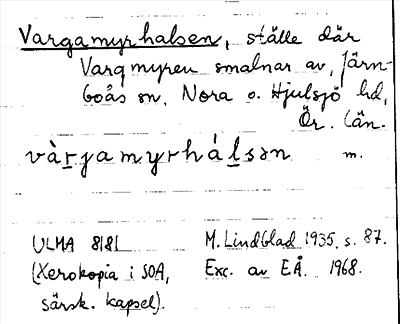 Vargamyrhalsen, ställe där
Vargmyren smalnar av, Järn-
boås sn, Nora o. Hjulsjö hd,
Ör. län.
vàrgamyrhálsən m.
ULMA 8181 M. Lindblad 1935, s. 87.
(Xerokopia i SOA, Exc. av EÅ. 1968.
särsk. kapsel).